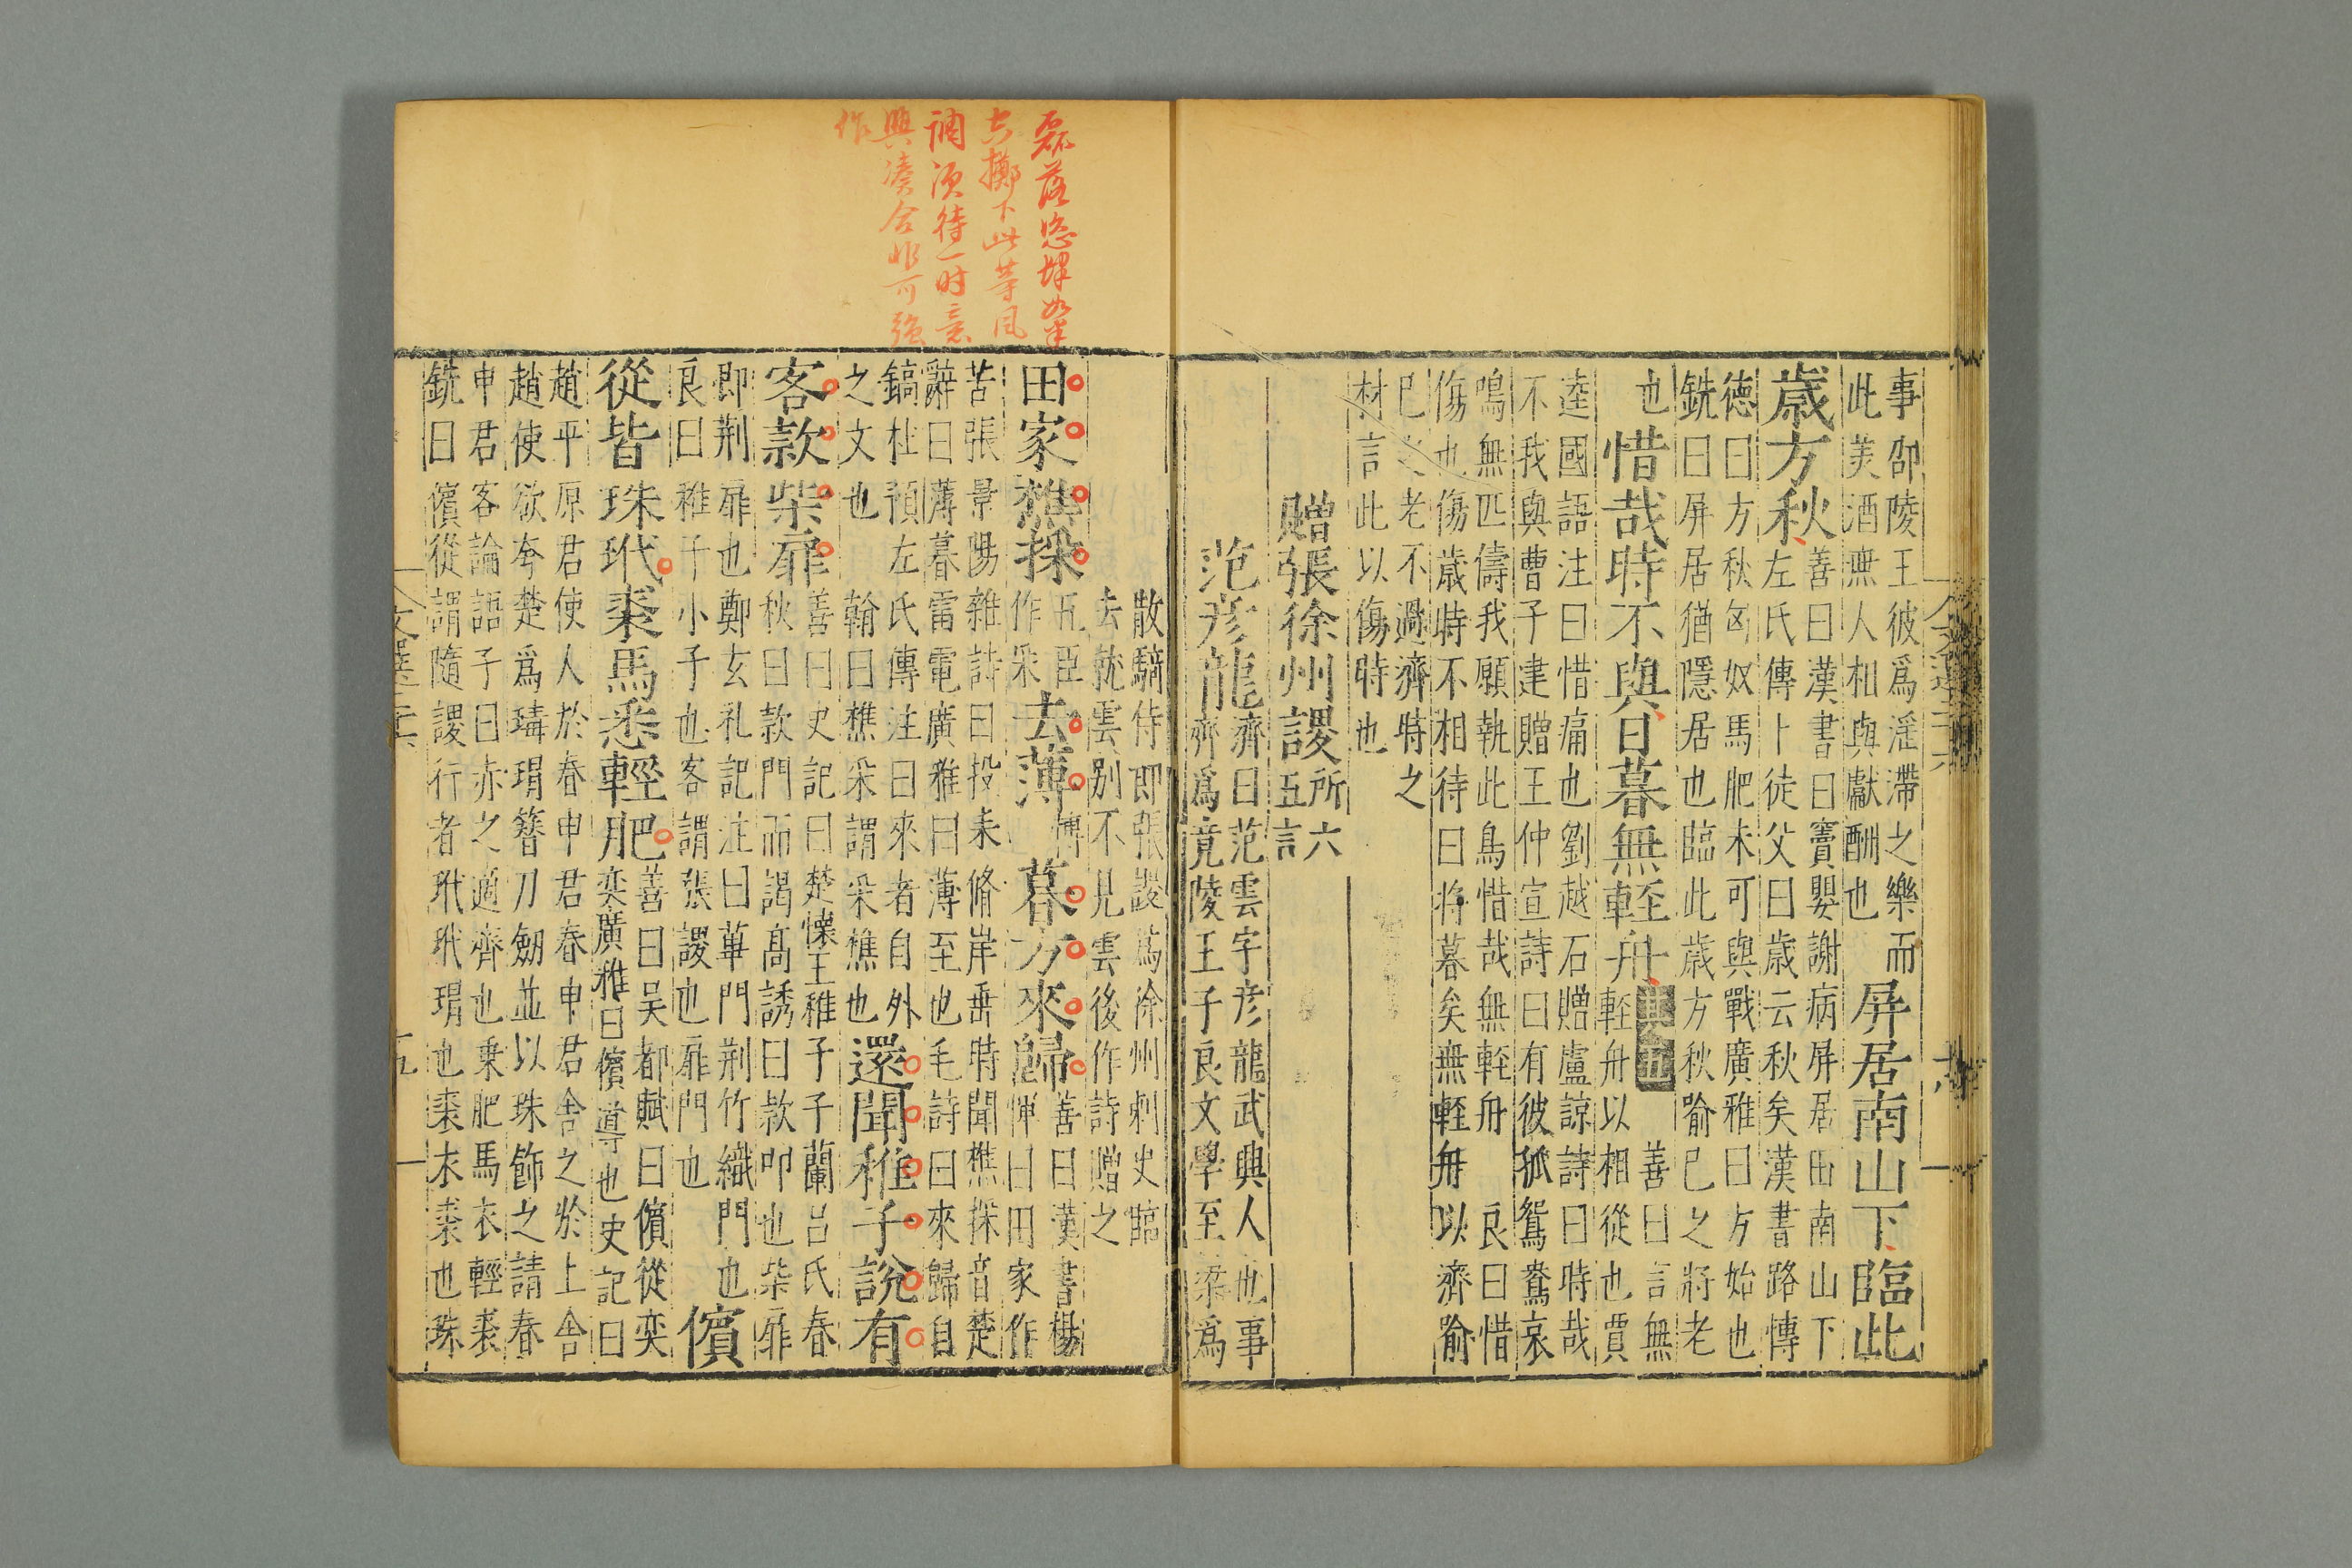 事邵陵王彼爲滛滯之樂而
此美酒無人相與獻酬也
屏居南山下臨此
歲方秋
善曰漢書曰竇嬰謝病屏居田南山下
左氏傳卜徒父曰歲云秋矣漢書路博
徳曰方秋匈奴馬肥未可與戰廣雅曰方始也
銑曰屏居猶隱居也臨此歲方秋喻已之將老
也
惜哉時不與日暮無輕舟
其五
善曰言無
輕舟以相從也賈
逵國語注曰惜痛也劉越石贈盧諒詩曰時哉
不我與曹子建贈王仲宣詩曰有彼孤鴛鴦哀
鳴無匹儔我願執此鳥惜哉無輕舟
良曰惜
傷也傷歲時不相待曰將暮矣無輕舟以濟喻
已老不過濟時之
材言此以傷時也
贈張徐州謖
所六
五言
范彦龍
濟曰范雲字彦龍武興人也事
齊爲竟陵王子良文學至梁爲
散騎侍郎張謖爲徐州刺史臨
去就雲别不見雲後作詩贈之
田家樵採
五臣
作采
去薄
博
暮方來歸
善曰漢書楊
惲曰田家作
苦張景陽雜詩曰投耒脩岸垂時聞樵採音楚
辭曰薄暮雷電廣雅曰薄至也毛詩曰來歸自
鎬杜預左氏傳注曰來者自外
之文也
翰曰樵采謂采樵也
還聞稚子說有
客款柴扉
善曰史記曰楚懷王稚子子蘭吕氏春
秋曰款門而謁高誘曰款叩也柴扉
即荆扉也鄭玄礼記注曰蓽門荆竹織門也
良曰稚子小子也客謂張謖也扉門也
儐
從皆珠玳裘馬悉輕肥
善曰吴都賦曰儐從奕
奕廣雅曰儐導也史記曰
趙平原君使人於春申君春申君舍之於上舍
趙使欲夸楚爲瑇瑁簪刀劒並以珠飾之請春
申君客論語子曰赤之適齊也乗肥馬衣輕裘
銑曰儐從謂隨謖行者玳玳瑁也裘衣裘也珠
磊落
下此等風
調須待一时意
興湊合非可强
作